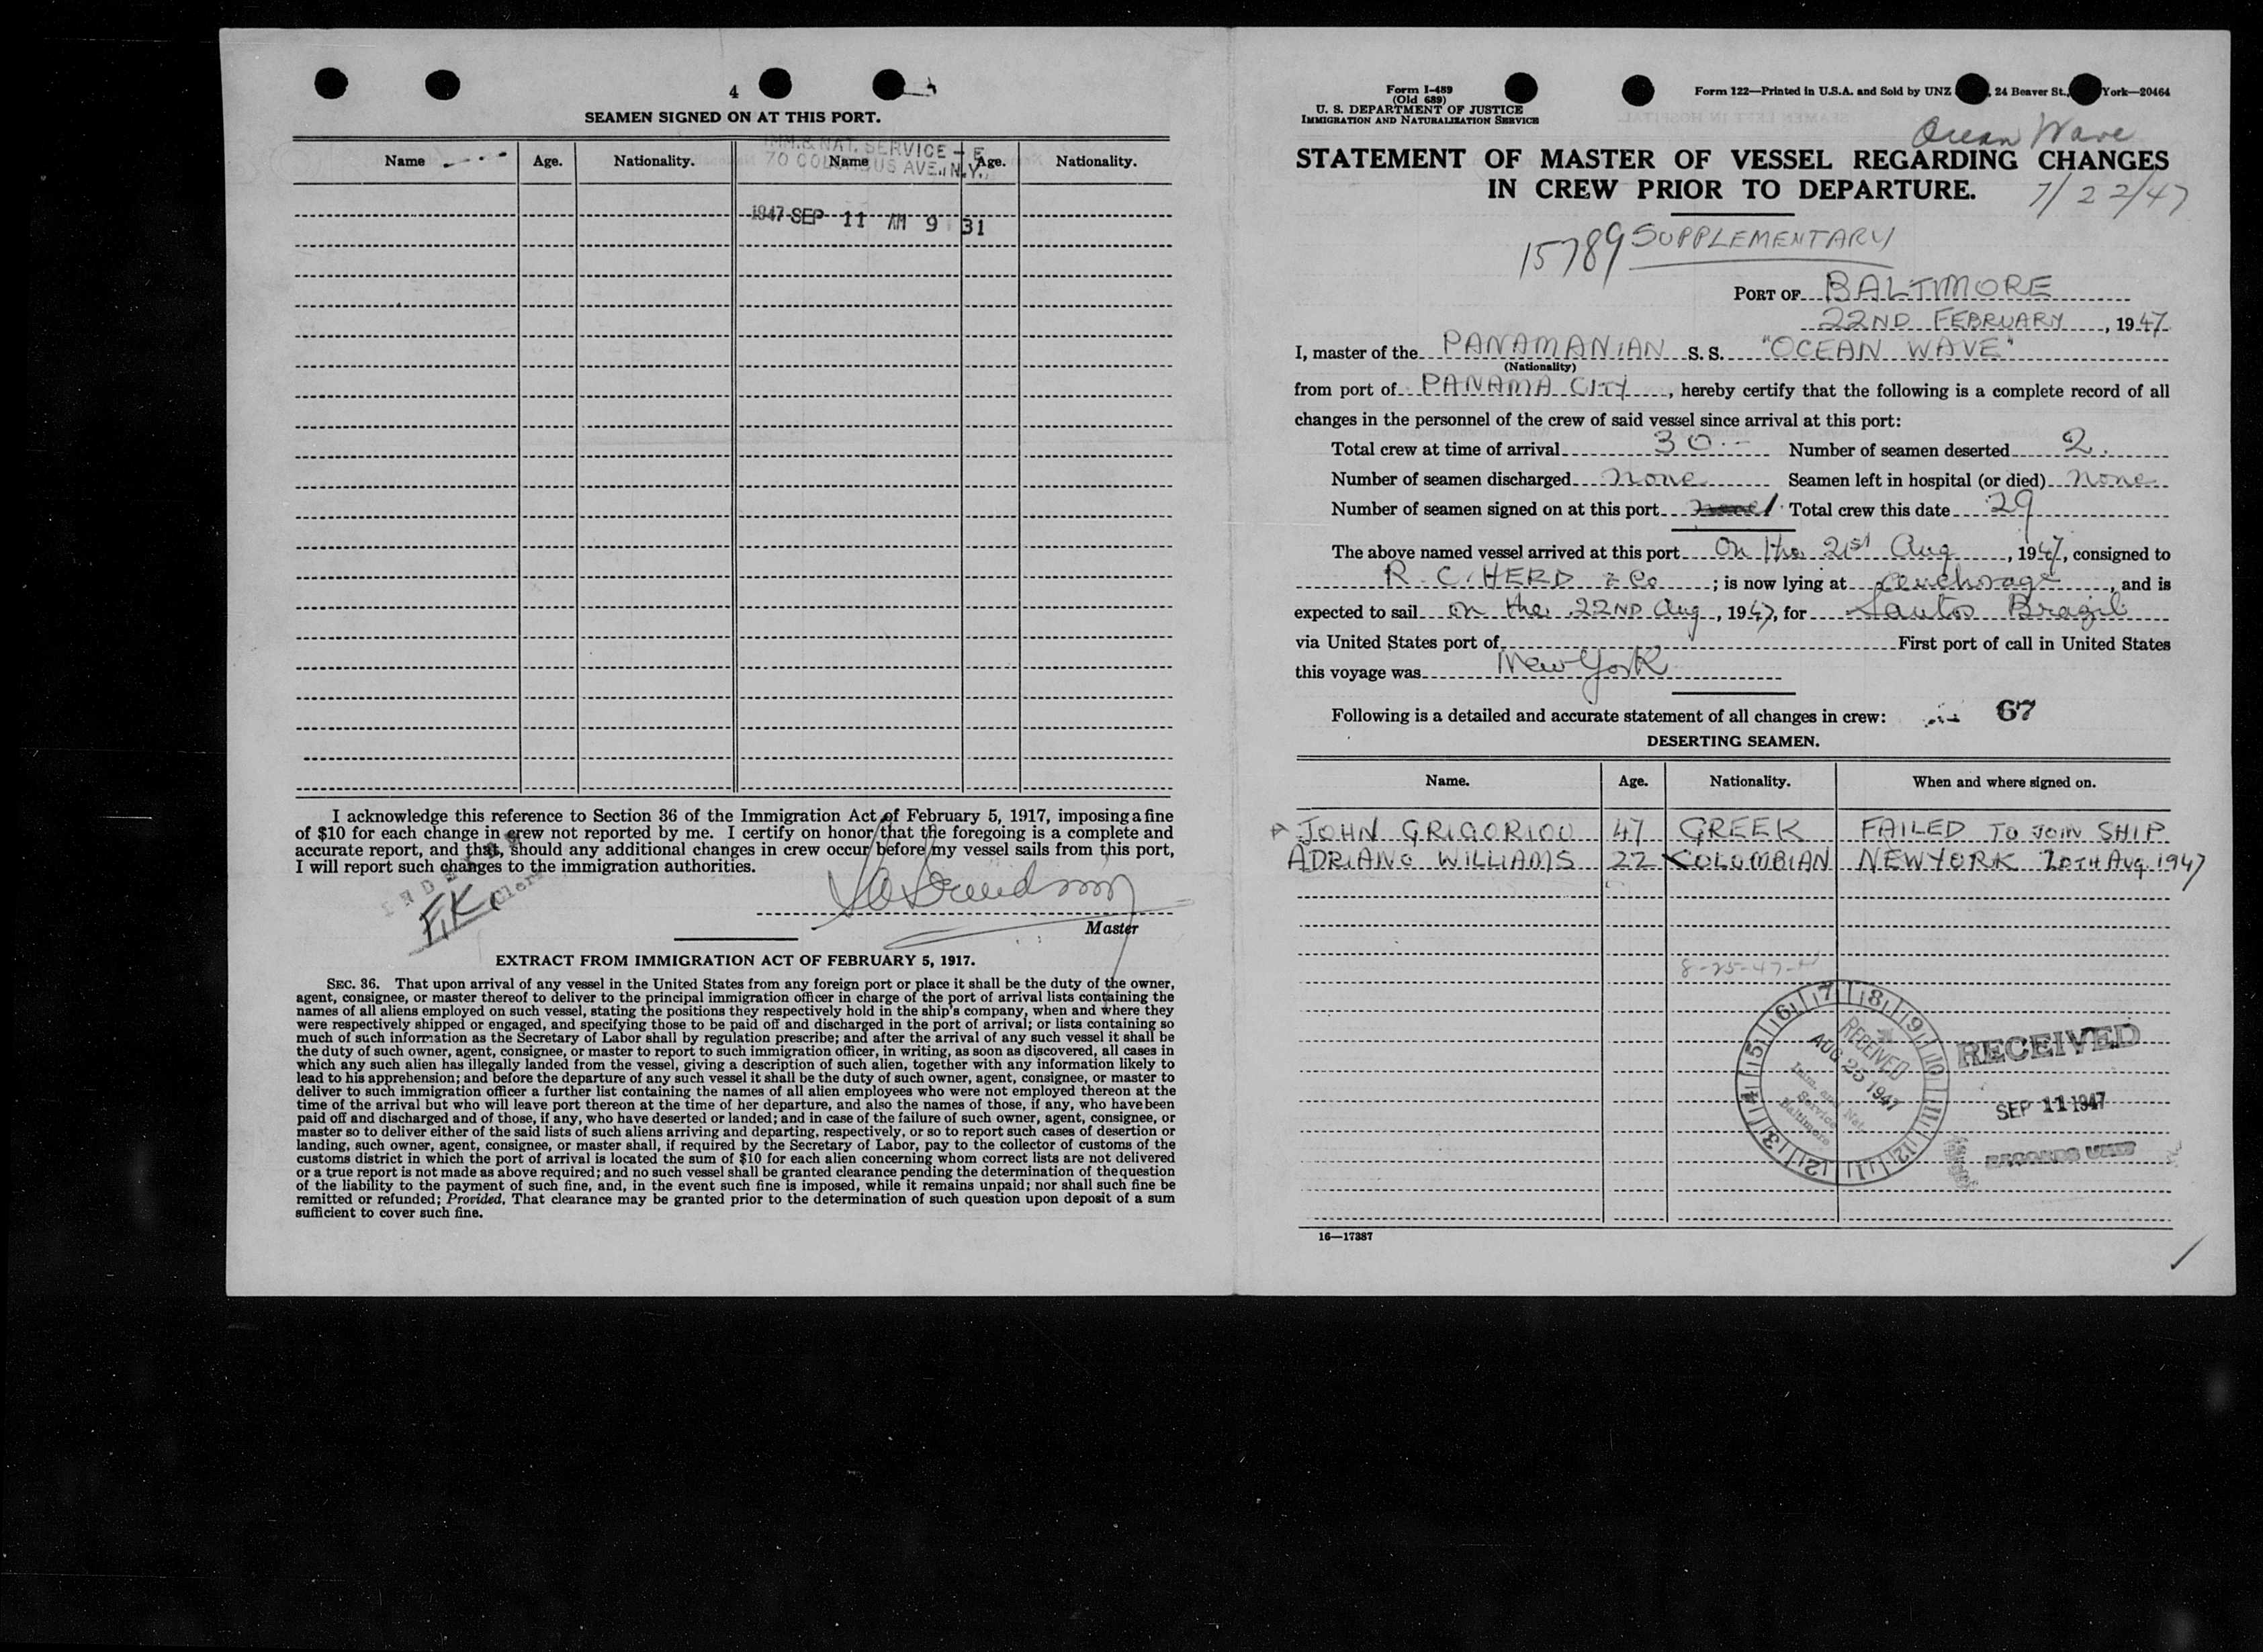 4
SEAMEN SIGNED ON AT THIS PORT.
IMM. & NAT. SERVICE
70 COLUMBUS AVE., N.Y.
Name Age. Nationality. Name Age. Nationality.
1947 SEP 11 AM 9 31
I acknowledge this reference to Section 36 of the Immigration Act of February 5, 1917, imposing a fine
of $10 for each change in crew not reported by me. I certify on honor that the foregoing is a complete and
accurate report, and that, should any additional changes in crew occur before my vessel sails from this port,
I will report such changes to the immigration authorities.
F.K.
Clerk
Master
EXTRACT FROM IMMIGRATION ACT OF FEBRUARY 5, 1917.
SEC. 36. That upon arrival of any vessel in the United States from any foreign port or place it shall be the duty of the owner,
agent, consignee, or master thereof to deliver to the principal immigration officer in charge of the port of arrival lists containing the
names of all aliens employed on such vessel, stating the positions they respectively hold in the ship's company, when and where they
were respectively shipped or engaged, and specifying those to be paid off and discharged in the port of arrival; or lists containing so
much of such information as the Secretary of Labor shall by regulation prescribe; and after the arrival of any such vessel it shall be
the duty of such owner, agent, consignee, or master to report to such immigration officer, in writing, as soon as discovered, all cases in
which any such alien has illegally landed from the vessel, giving a description of such alien, together with any information likely to
lead to his apprehension; and before the departure of any such vessel it shall be the duty of such owner, agent, consignee, or master to
deliver to such immigration officer a further list containing the names of all alien employees who were not employed thereon at the
time of the arrival but who will leave port thereon at the time of her departure, and also the names of those, if any, who have been
paid off and discharged and of those, if any, who have deserted or landed; and in case of the failure of such owner, agent, consignee, or
master so to deliver either of the said lists of such aliens arriving and departing, respectively, or so to report such cases of desertion or
landing, such owner, agent, consignee, or master shall, if required by the Secretary of Labor, pay to the collector of customs of the
customs district in which the port of arrival is located the sum of $10 for each alien concerning whom correct lists are not delivered
or a true report is not made as above required; and no such vessel shall be granted clearance pending the determination of the question
of the liability to the payment of such fine, and, in the event such fine is imposed, while it remains unpaid; nor shall such fine be
remitted or refunded; Provided, That clearance may be granted prior to the determination of such question upon deposit of a sum
sufficient to cover such fine.
Form I-489
(Old 689)
U. S. DEPARTMENT OF JUSTICE
IMMIGRATION AND NATURALIZATION SERVICE
Form 122—Printed in U.S.A. and Sold by UNZ , 24 Beaver St., York—20464
Ocean Wave
STATEMENT OF MASTER OF VESSEL REGARDING CHANGES
IN CREW PRIOR TO DEPARTURE.
7/22/47
15789 SUPPLEMENTARY
PORT OF BALTIMORE
22ND FEBRUARY, 1947
I, master of the PANAMANIAN S. S. "OCEAN WAVE"
(Nationality)
from port of PANAMA CITY, hereby certify that the following is a complete record of all
changes in the personnel of the crew of said vessel since arrival at this port:
Total crew at time of arrival 30 Number of seamen deserted 2.
Number of seamen discharged none Seamen left in hospital (or died) none
Number of seamen signed on at this port none 1. Total crew this date 29
The above named vessel arrived at this port on the 21st Aug, 1947, consigned to
R. C. HERD & Co; is now lying at anchorage, and is
expected to sail on the 22ND Aug, 1947, for Santos Brazil
via United States port of First port of call in United States
this voyage was New York
Following is a detailed and accurate statement of all changes in crew:
67
DESERTING SEAMEN.
Name. Age. Nationality. When and where signed on.
JOHN GRIGORIOU 47 GREEK FAILED TO JOIN SHIP
ADRIANO WILLIAMS 22 COLOMBIAN NEWYORK 20TH Aug. 1947
8-25-47
7 8 9 10 11 12 1 2 3 4 5 6
RECEIVED
AUG 25 1947
Imm. and Nat.
Service
Baltimore
RECEIVED
SEP 11 1947
RECORDS UNIT
16—17387